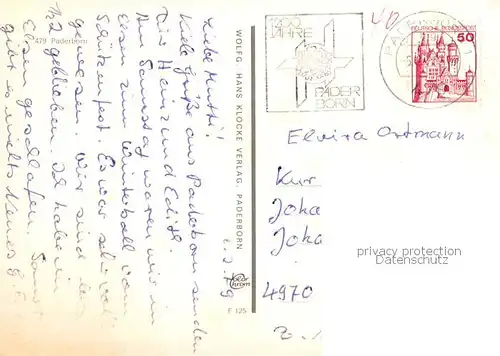 479 Paderborn
Liebe Mutti!
Viele Grüße aus Paderborn senden
Dir Heinz und Edith.
Am Samstag waren wir in
Elsen zum Winterball vom
Schützenfest. Es war sehr voll
gewesen. Wir sind
geblieben. Ich habe in
Elsen geschlafen. Sonst
gibt es nichts Neues
WOLFG. HANS KLOCKE VERLAG, PADERBORN
color chrom
E 125
1200 JAHRE
PADER
BORN
DEUTSCHE BUNDESPOST
50
Elvira Ortmann
Kur
Joha
Joha
4970
privacy protection
Datenschutz